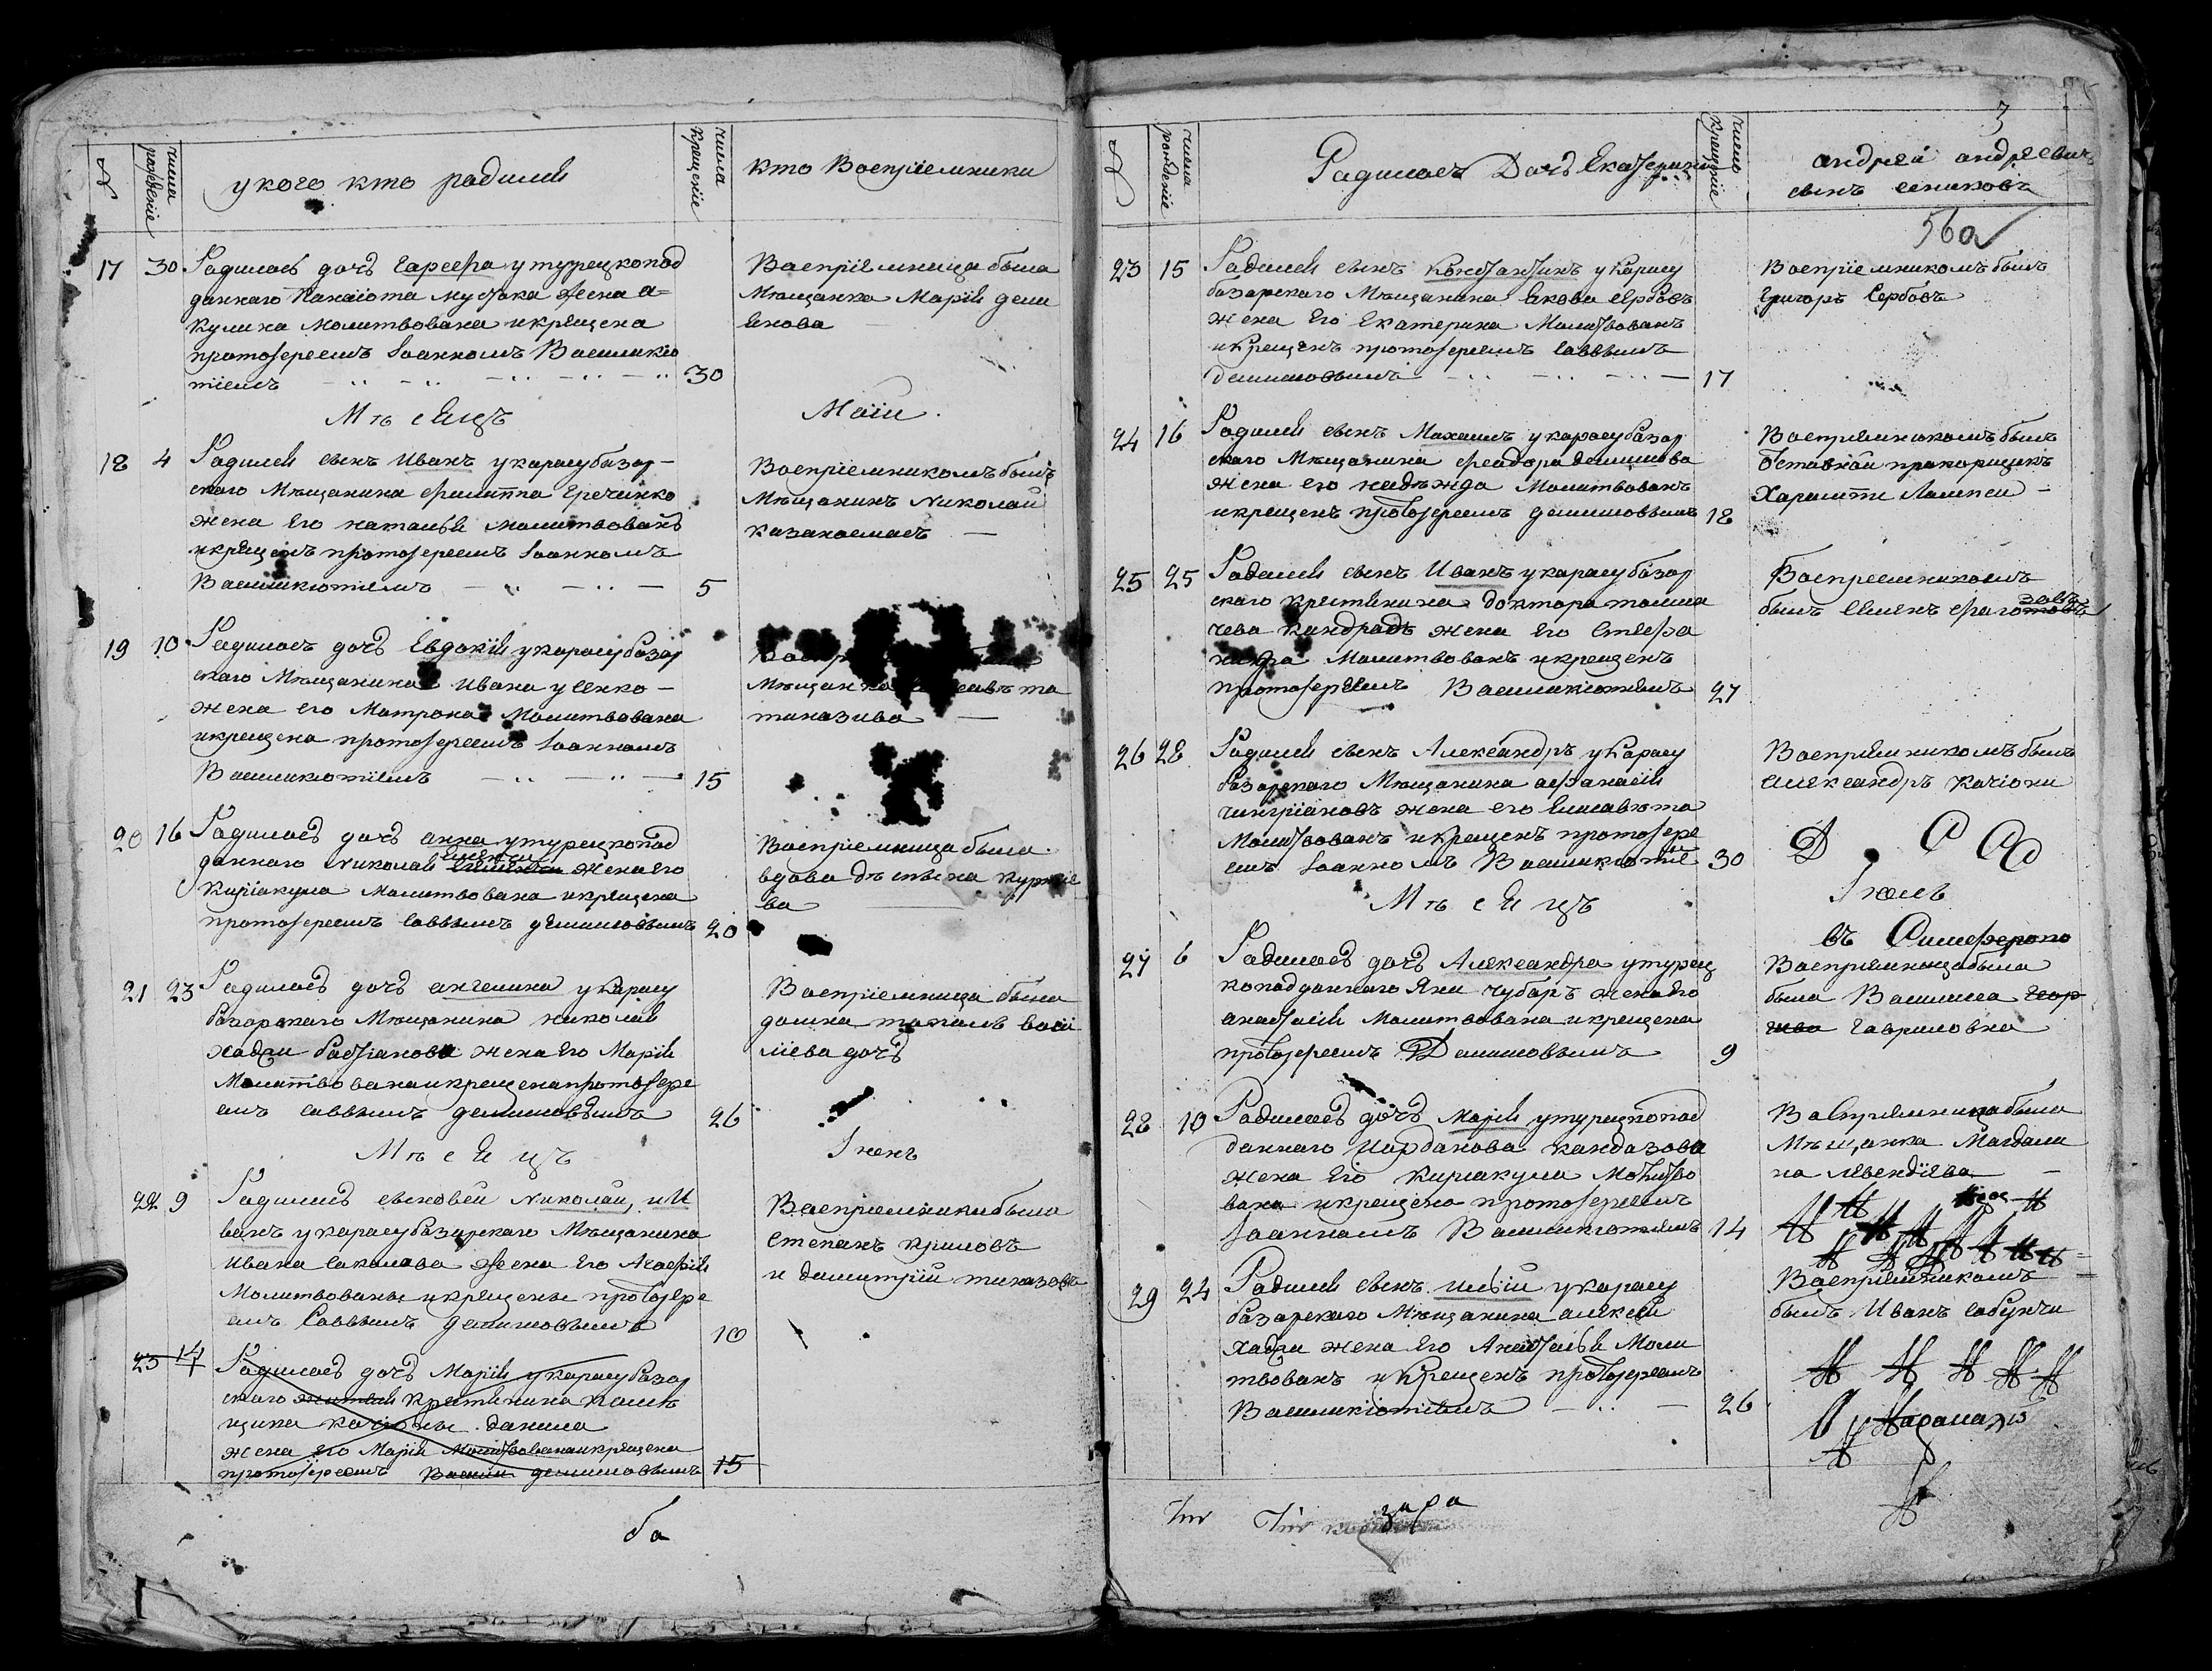 №
числа рождѣніе
у кого кто родился
числа крещеніе
кто Воспріемники
17 30 Родилась дочь Гарсефа у турецкопод
даннаго Панаіота мустака жена а=
кулина Молитвована и крещена
протоіереемъ Іоанномъ Василикіо
тіемъ 30
Воспріемница была
Мѣщанка Марія деми
Мѣсяцъ Маія
18 4 Родился сынъ Иванъ у карасубазар-
скаго Мѣщанина филиппа Гречинко
жена Его наталья молитвованъ
и крещенъ протоіереемъ Іоанномъ
Василикіотіемъ 5
Воспріемникомъ былъ
Мѣщанинъ Николай
казанасмасъ
19 10 Родилась дочь Евдокія у карасубазар
скаго Мѣщанина Ивана усенко-
жена его Матрона Молитвована
и крещена протоіереемъ Іоанномъ
Василикіотіемъ 15
Мѣщанка
тиказива
20 16 Родилась дочь анна у турецкопод
даннаго Николая жена его
Киріакула молитвована и крещена
протоіереемъ Саввымъ демиловымъ 20
Воспріемница была
вдова
ва
21 23 Родилась дочь ангелина у Карасу
базарскаго Мѣщанина николая
хаджи жена Его Марія
Молитвована и крещена протоіере
емъ Саввымъ демиловымъ 26
Воспріемница была
домна васи
ліева дочь
Мѣсяцъ Іюнь
22 9 Родились сыновей Николай, и И
ванъ у карасубазарскаго Мѣщанина
Ивана Соколова жена Его Агафія
Молитвованы и крещены протоіере
емъ Саввымъ демиловымъ 10
Воспріемники были
Степанъ Криловъ
и димитрій тиказовъ
23 14 Родилась дочь Марія у карасубазар
скаго жителя Крестянина камен
щика данила
жена Его Марія Молитвована и крещена
протоіереемъ демиловымъ 15
ба
3
№
числа рождѣніе
Родилась Дочь Екатерина
число крещеніе
андрей андреевичъ
сынъ
56а
23 15 Родился сынъ Константинъ у Карасу
базарскаго Мѣщанина Якова Сербовъ
жена Его Екатерина Молитвованъ
и Крещенъ протоіереемъ Саввымъ
демиловымъ 17
Воспріемникомъ былъ
Григоръ Сербовъ
24 16 Родился сынъ Михаилъ у карасубазар
скаго Мѣщанина феодора демилова
жена его надѣжда Молитвованъ
и крещенъ протоіереемъ демиловымъ 18
Воспріемникомъ былъ
отставной прапорщикъ
25 25 Родился сынъ Иванъ у карасубазар
скаго крестянина доктора толма
чева Кандратъ жена Его Стефа
нида Молитвованъ и крещенъ
протоіереемъ Василикіотіемъ 27
Воспреемникомъ
былъ Семенъ
26 28 Родился сынъ Александръ у Карасу
базарскаго Мѣщанина афанасія
жена его Елисавета
Молитвованъ и крещенъ протоіере
емъ Іоанномъ Василикіотіе 30
Воспріемникомъ былъ
Александръ Качіони
Д С
Мѣсяцъ Іюль
въ Симферопо
27 6 Родилась дочь Александра у турец
коподданнаго Яни чубаръ жена Его
анастасія Молитвована и крещена
протоіереемъ Демиловымъ 9
Воспріемница была
была Василиса Геор
гива Гавриловна
28 10 Родилась дочь Марія у турецкопод
даннаго Иорданова кандазова
жена Его Кириакула Молитво
вана и крещена протоіереемъ
Іоанномъ Василикіотіемъ 14
Воспріемница была
Мѣщанка Магдали
на левендіева
29 24 Родился сынъ илія у карасу
базарскаго Мѣщанина алексея
хаджи жена Его Анастасья Моли
твованъ и Крещенъ протоіереемъ
Василикіотіемъ 26
Воспріемникомъ
былъ Иванъ Сабунчи